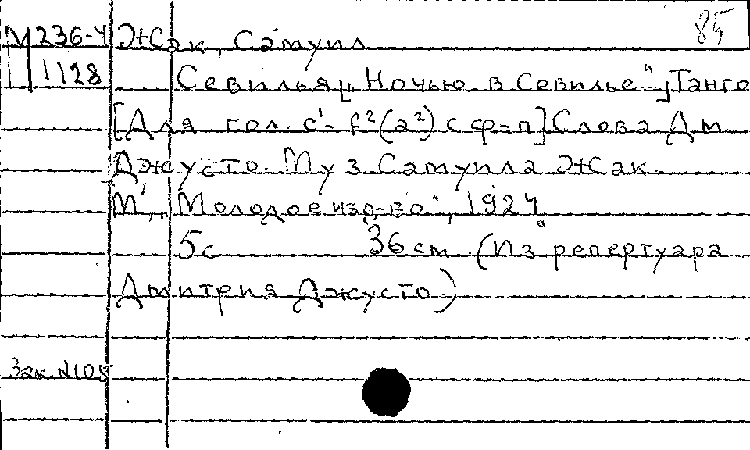 85
М 236-4 Жак, Самуил
1128 Севилья „Ночью в Севилье“ Танго
[Для гол. c¹- f²(a²) с ф-п] Слова Дм
Джусто. Муз Самуила Жак
М, „Молодое изд-во“, 1927
5с 36см (Из репертуара
Дмитрия Джусто)
Зак №108